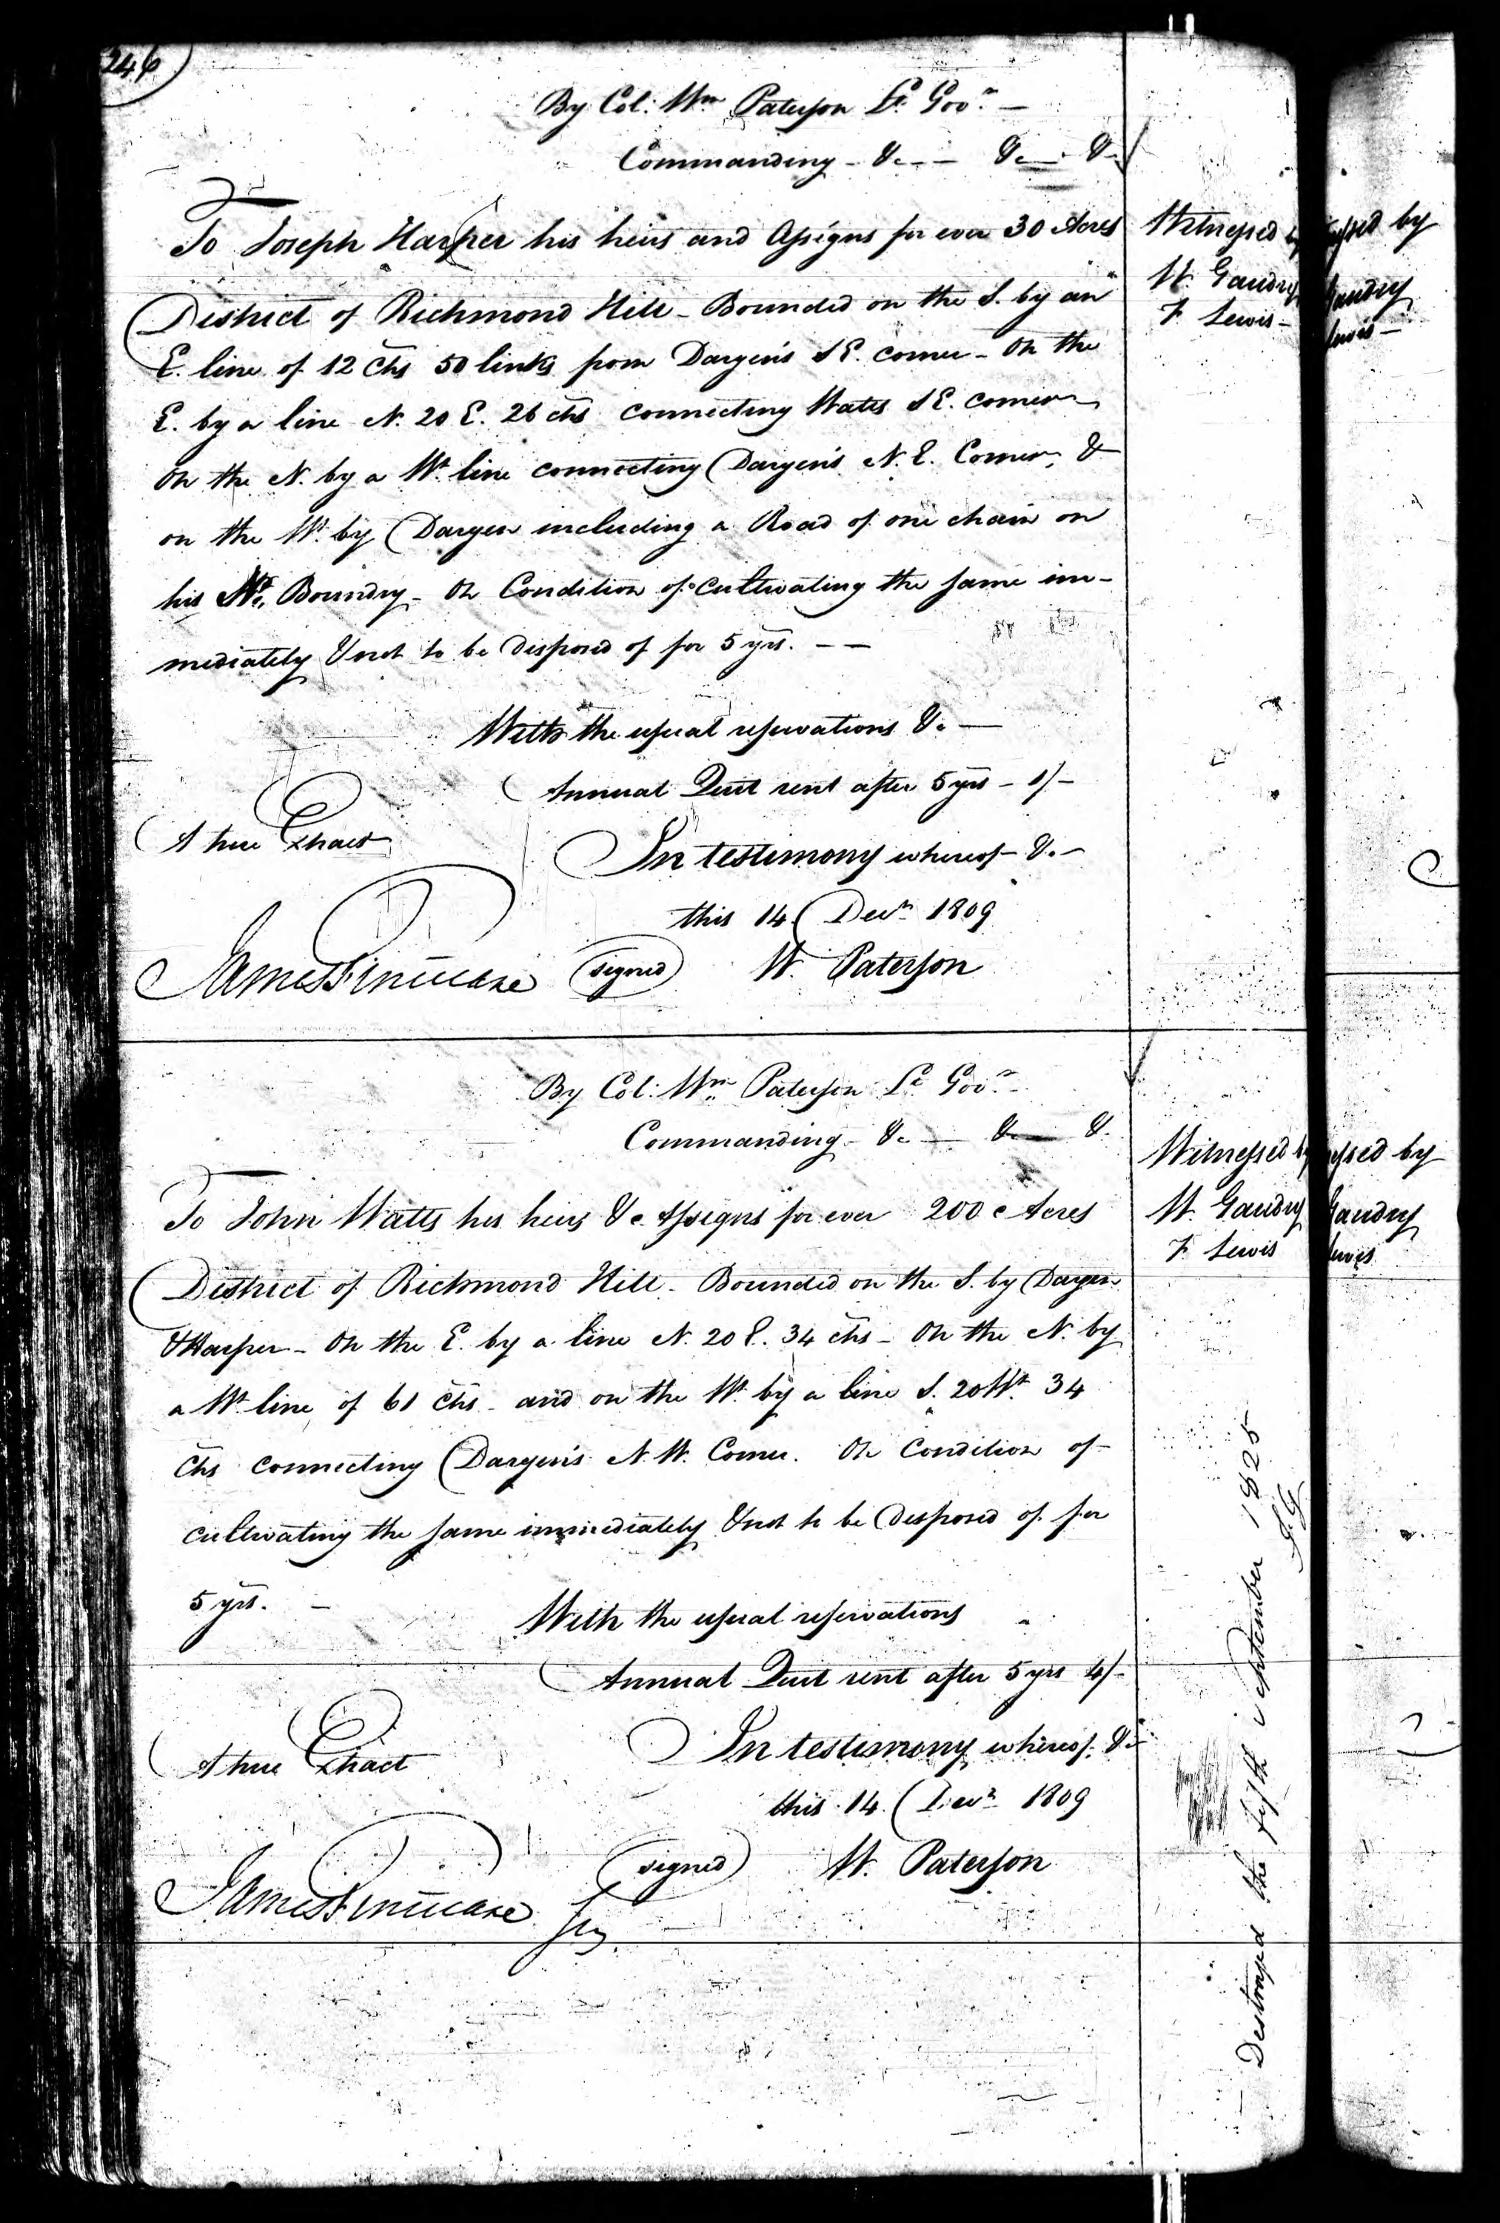 246
By Col: Wm Paterson Lt Govr. —
Commanding - &c — &c — &c
To Joseph Harper his heirs and Assigns for ever 30 Acres
District of Richmond Hill - Bounded on the S. by an
E. line of 12 Chs 50 links from Dargen's S E. corner - On the
E. by a line N. 20 E. 26 chs connecting Watts S E. corner
On the N. by a Wt line connecting Dargen's N. E. Corner, &
on the Wt. by Dargen including a Road of one chain on
his Boundry - On Condition of Cultivating the same im-
mediately & not to be Disposed of for 5 yrs. — —
With the usual reservations &c —
Annual Quit rent after 5 yrs - 1/-
A true Extract
In testimony whereof &c -
this 14 Decr 1809
James Finucane (signed) W. Paterson
Witnessed by
W. Gaudry
F Lewis -
essed by
Gaudry
Lewis -
By Col: Wm Paterson Lt Govr -
Commanding - &c — &c — &c
To John Watts his heirs &c Assigns for ever 200 Acres
District of Richmond Hill - Bounded on the S. by Dargen
& Harper - On the E. by a line N. 20 E. 34 chs - On the N. by
a Wt line of 61 Chs - and on the Wt. by a line S. 20 Wt. 34
Chs connecting Dargen's N. W. Corner. On Condition of
cultivating the same immediately & not to be Disposed of for
5 yrs. -
With the usual reservations
Annual Quit rent after 5 yrs 4/-
A true Extract
In testimony whereof &c
this 14 Decr 1809
James Finucane (signed) W. Paterson
Witnessed by
W. Gaudry
F Lewis
essed by
Gaudry
Lewis
Destroyed the fifth September 1825
J.G